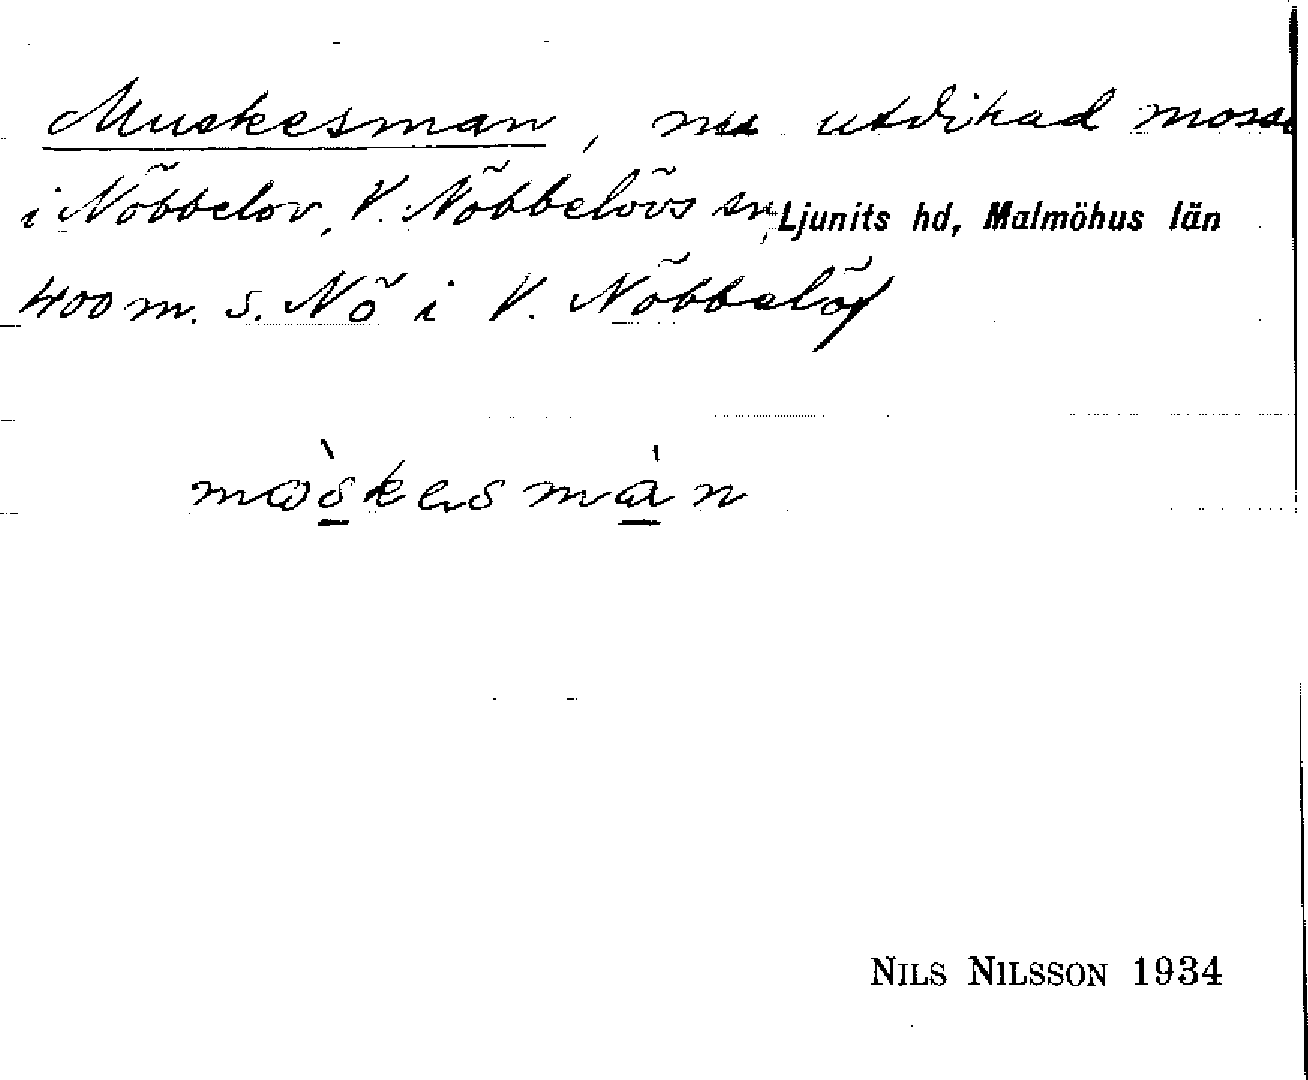 Muskesman, nu utdikad mosse
i Nöbbelöv, V. Nöbbelövs sn, Ljunits hd, Malmöhus län
400 m. s. Nö i V. Nöbbelöv
NILS NILSSON 1934